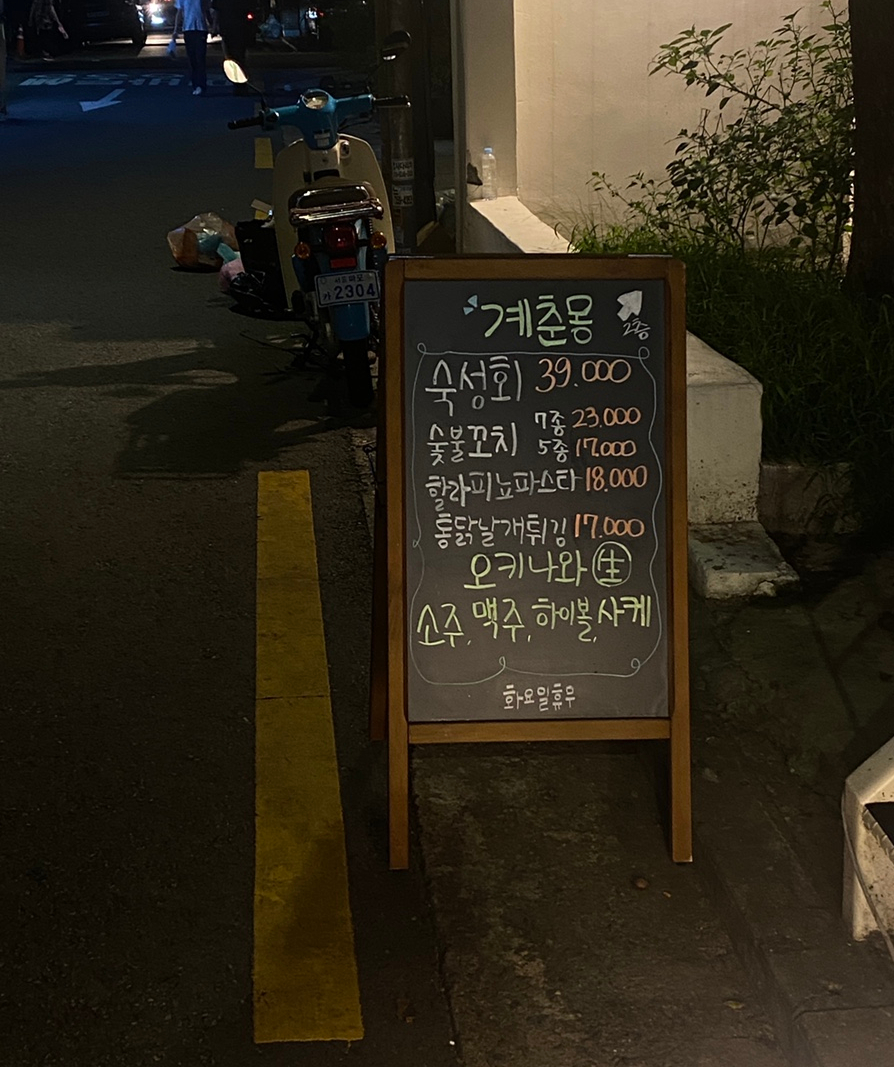 계춘몽
2층
숙성회 39.000
숯불꼬치 7종 23.000
5종 17.000
할라피뇨파스타 18.000
통닭날개튀김 17.000
오키나와 生
소주, 맥주, 하이볼, 사케
화요일휴무
서울마포
카 2304